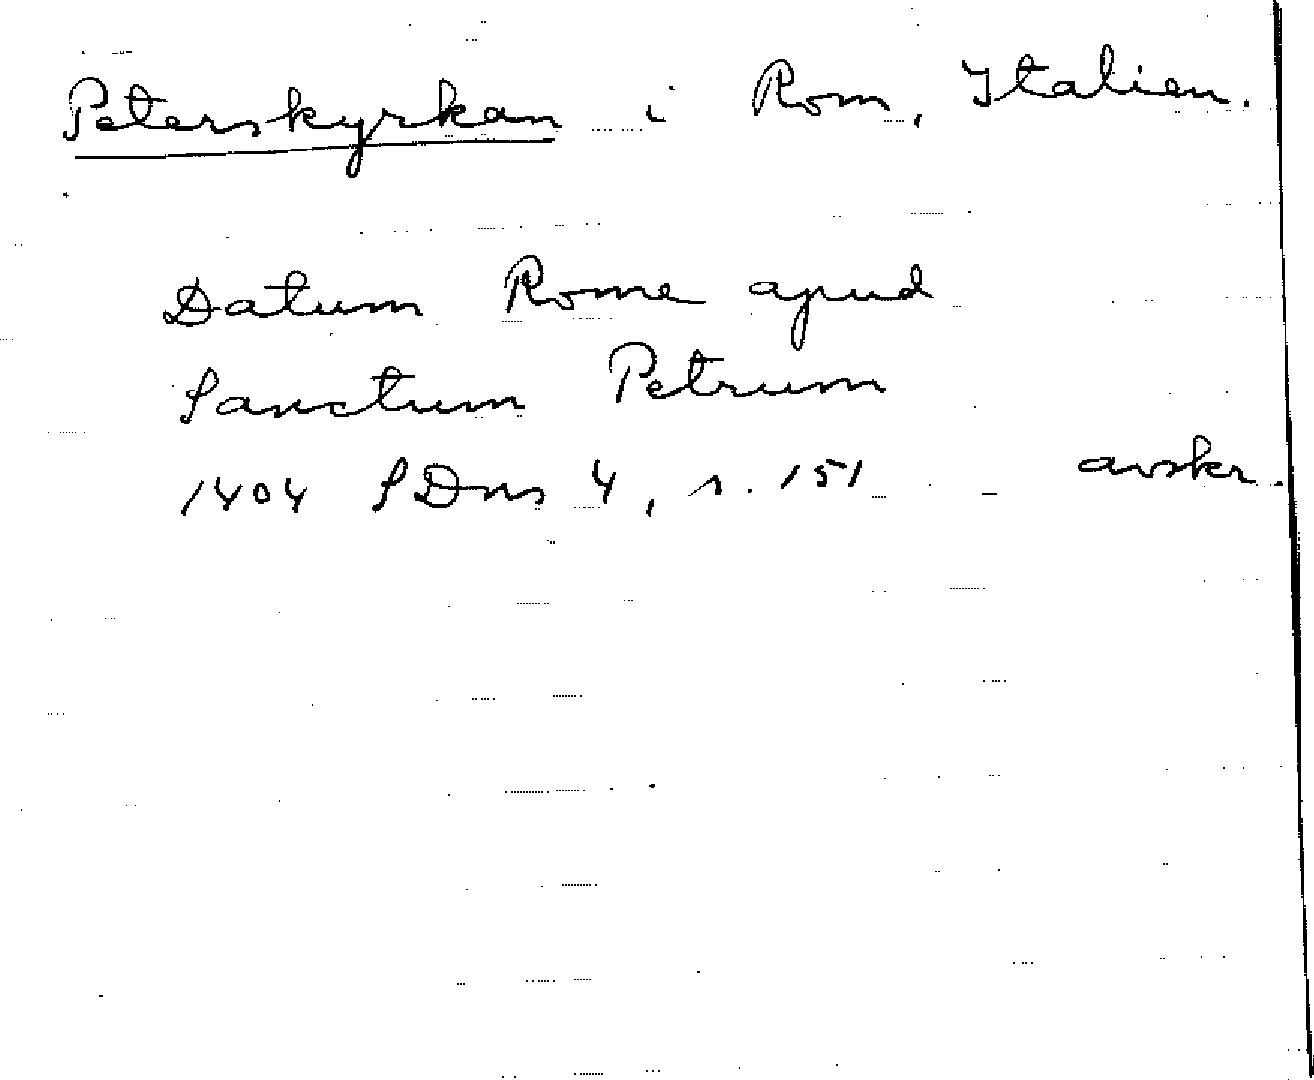 Peterskyrkan i Rom, Italien.
Datum Rome apud
Sanctum Petrum
1404 SDns 4, s. 151 avskr.